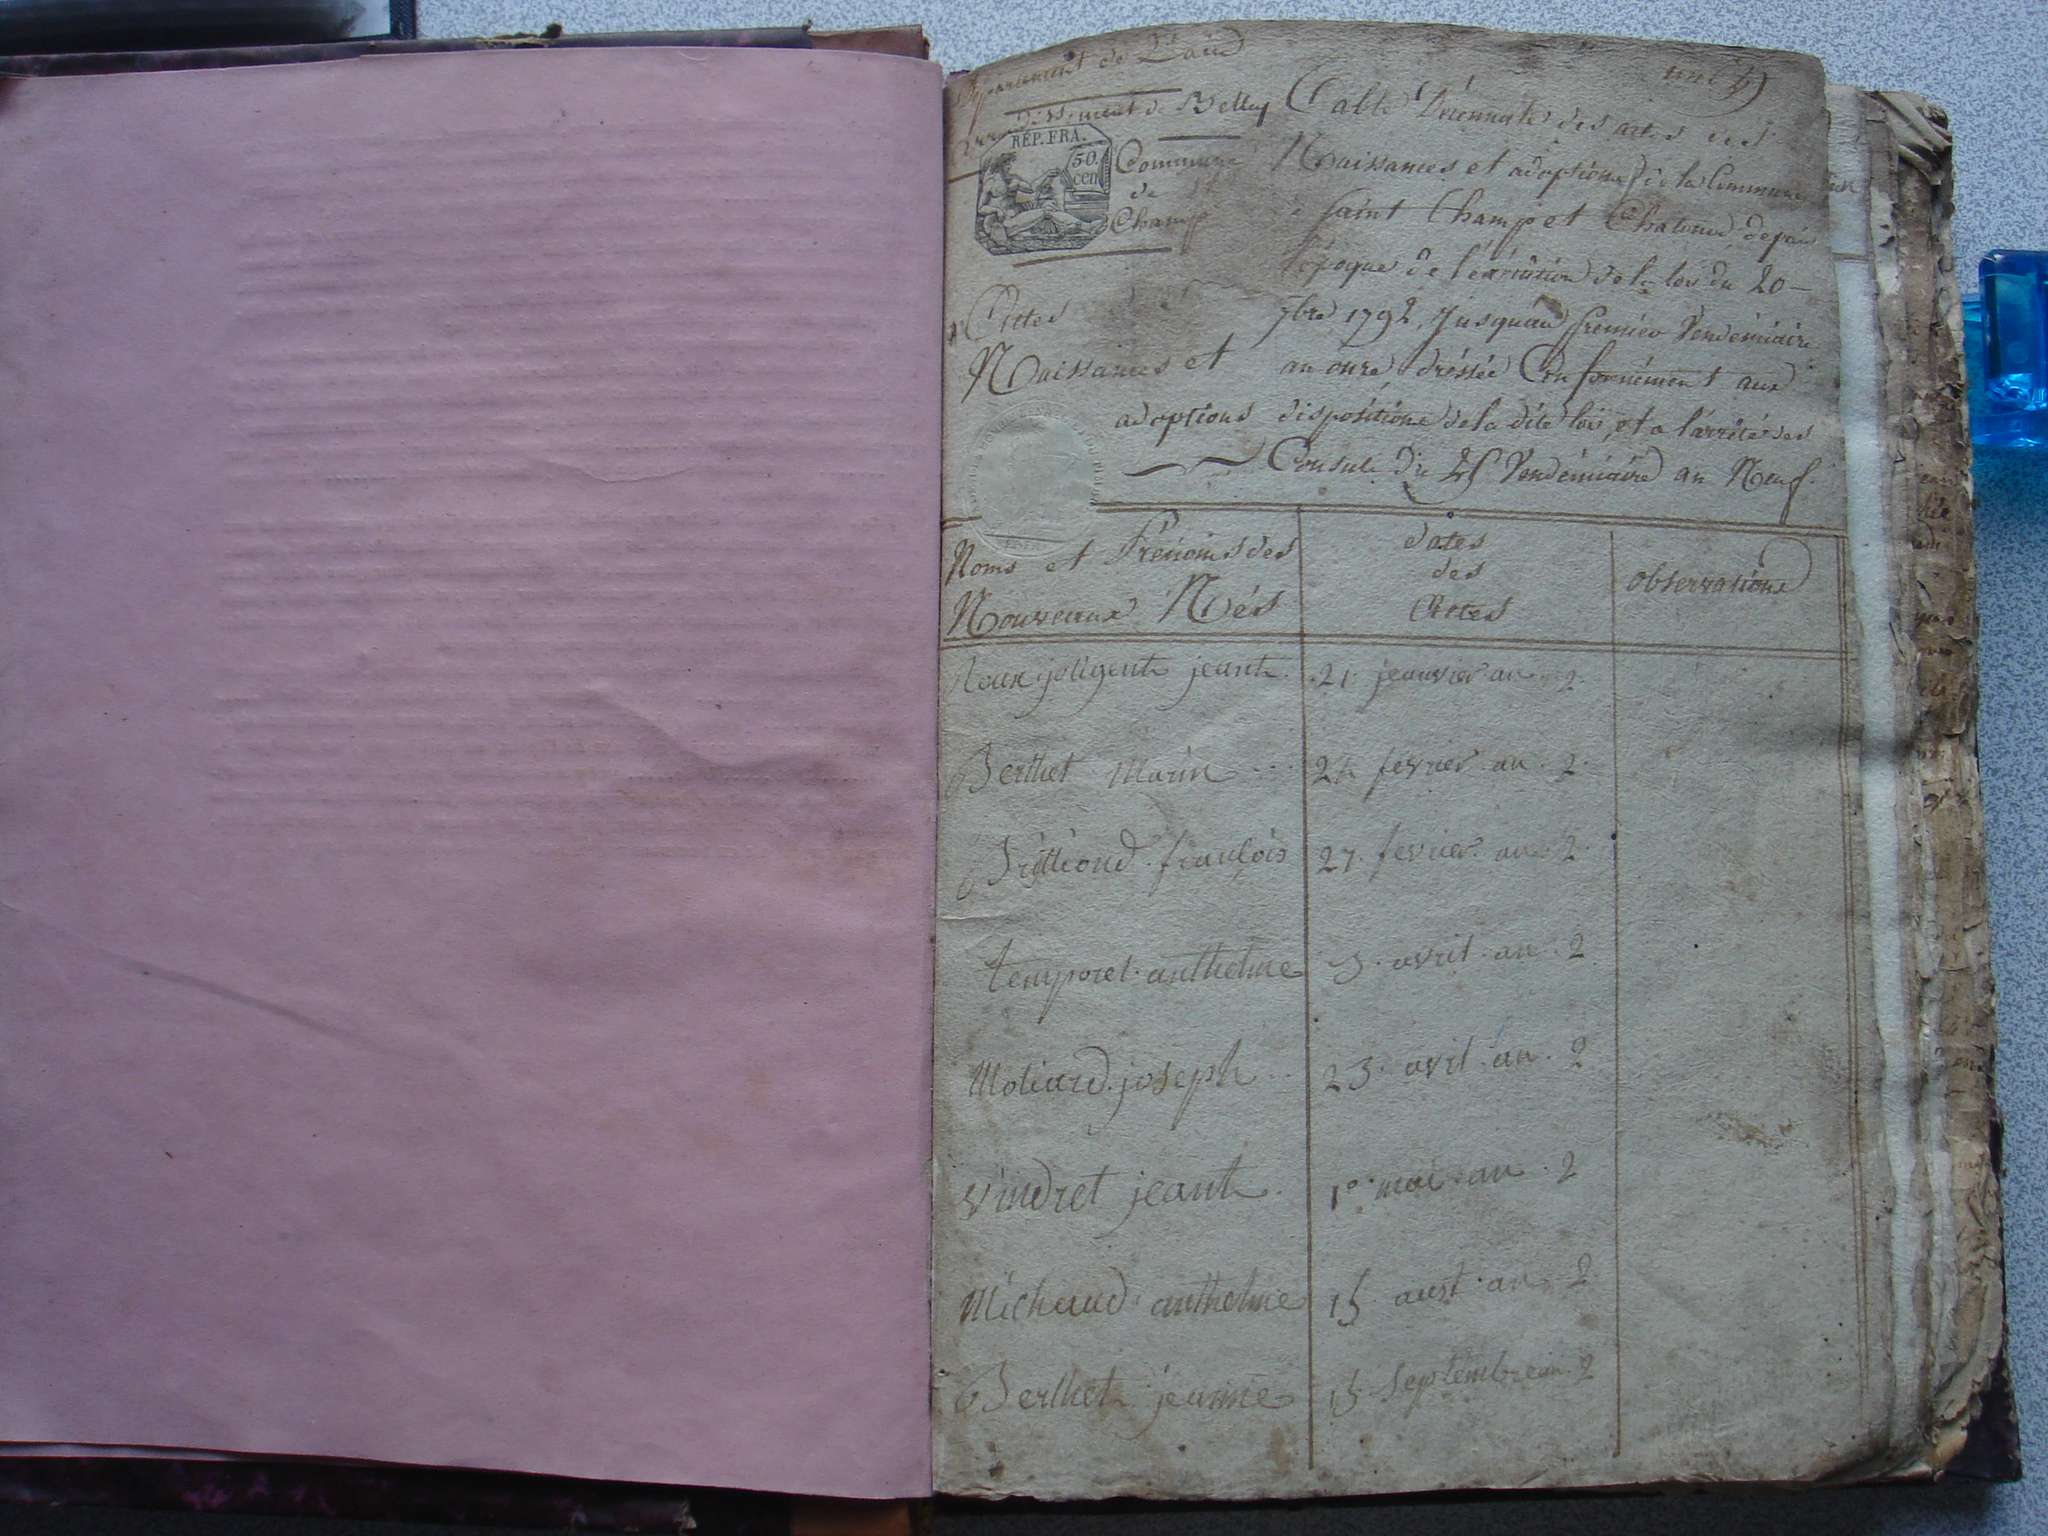 Département de L'ain
arrondissement de Belley
RÉP. FRA.
50. cen
Commune
de St
Champ
Actes
Naissances et
adoptions
Table Décennale des actes des
Naissances et adoptions de la Commune
de Saint Champ et Chatonod depuis
l'époque de l'éxécution de la loi du 20
7bre 1792, Jusquau premier Vendémiaire
an onze dréssée Conformément aux
dispositions de la dite loi, et a l'arrêté des
Consuls du 25 Vendémiaire an Neuf.
Noms et Prénoms des
Nouveaux Nés
dates
des
Actes
observations
Roux jeant 21 jeanvier an 2
Berthet Marin 24 fevrier an 2
françois 27 fevrier an 2
temporet anthelme 3 avril an 2
Moliard joseph 23 avril an 2
Vindret jeant 1e mai an 2
Michaud anthelme 15 aust an 2
Berthet jeanne 15 Septembre an 2